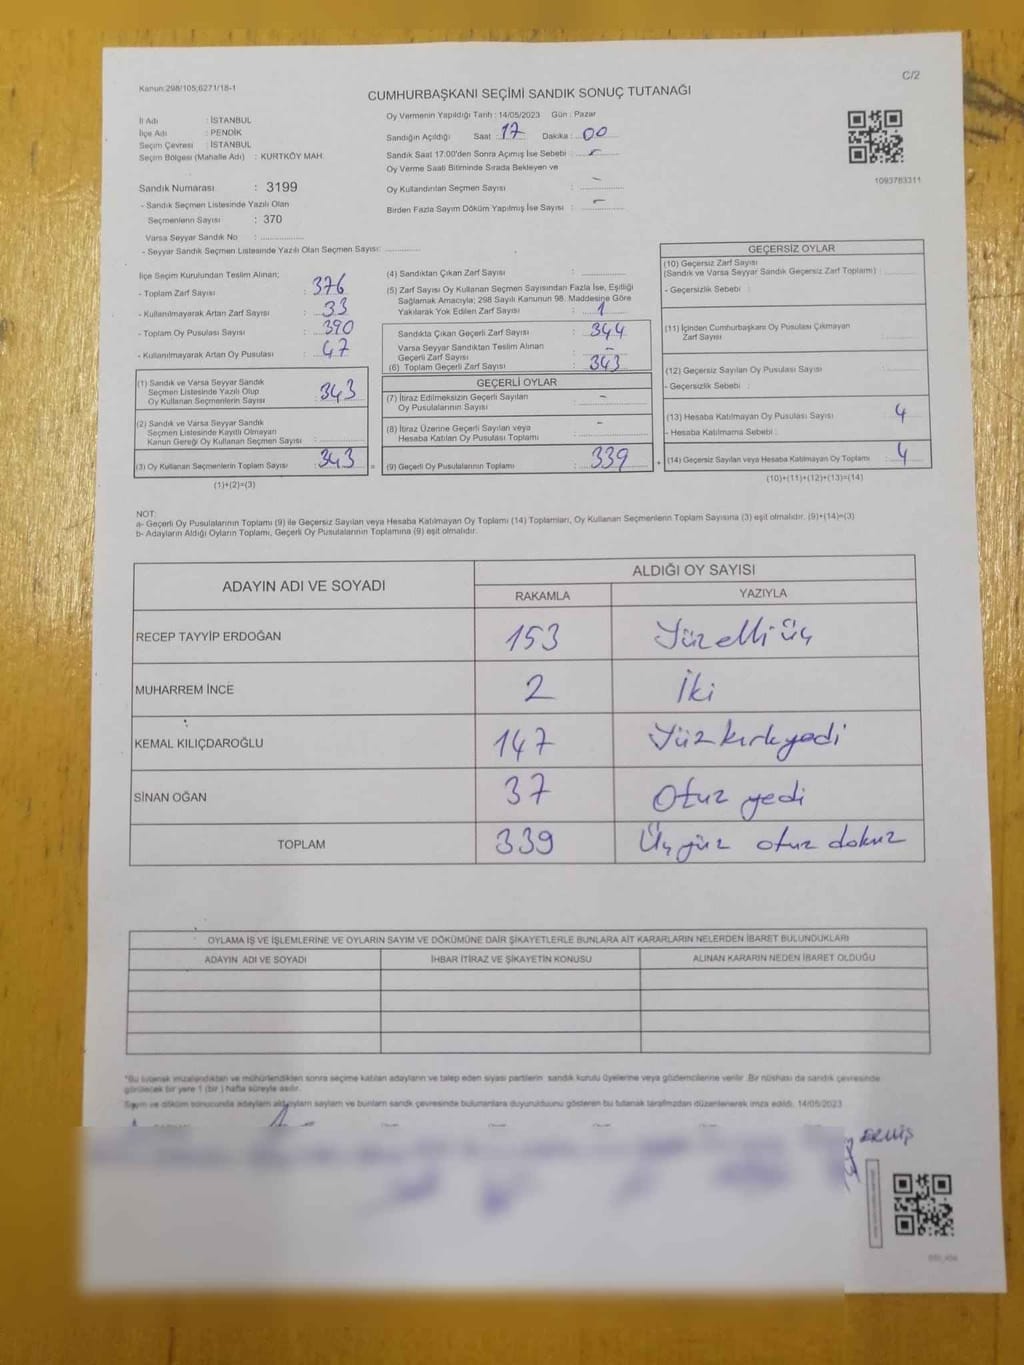 C/2
Kanun:298/105;6271/18-1
CUMHURBAŞKANI SEÇİMİ SANDIK SONUÇ TUTANAĞI
İl Adı : İSTANBUL
İlçe Adı : PENDİK
Seçim Çevresi : İSTANBUL
Seçim Bölgesi (Mahalle Adı) : KURTKÖY MAH.
Sandık Numarası : 3199
- Sandık Seçmen Listesinde Yazılı Olan
Seçmenlerin Sayısı : 370
Varsa Seyyar Sandık No : ................
- Seyyar Sandık Seçmen Listesinde Yazılı Olan Seçmen Sayısı: .............
Oy Vermenin Yapıldığı Tarih : 14/05/2023 Gün : Pazar
Sandığın Açıldığı Saat 17 Dakika : 00
Sandık Saat 17:00'den Sonra Açımış İse Sebebi :
Oy Verme Saati Bitiminde Sırada Bekleyen ve
Oy Kullandırılan Seçmen Sayısı : -
Birden Fazla Sayım Döküm Yapılmış İse Sayısı : -
1093783311
İlçe Seçim Kurulundan Teslim Alınan;
- Toplam Zarf Sayısı : 376
- Kullanılmayarak Artan Zarf Sayısı : 33
- Toplam Oy Pusulası Sayısı : 390
- Kullanılmayarak Artan Oy Pusulası : 47
(1) Sandık ve Varsa Seyyar Sandık
Seçmen Listesinde Yazılı Olup
Oy Kullanan Seçmenlerin Sayısı : 343
(2) Sandık ve Varsa Seyyar Sandık
Seçmen Listesinde Kayıtlı Olmayan
Kanun Gereği Oy Kullanan Seçmen Sayısı :
(3) Oy Kullanan Seçmenlerin Toplam Sayısı : 343 =
(1)+(2)=(3)
(4) Sandıktan Çıkan Zarf Sayısı :
(5) Zarf Sayısı Oy Kullanan Seçmen Sayısından Fazla İse, Eşitliği
Sağlamak Amacıyla; 298 Sayılı Kanunun 98. Maddesine Göre
Yakılarak Yok Edilen Zarf Sayısı : 1
Sandıkta Çıkan Geçerli Zarf Sayısı : 344
Varsa Seyyar Sandıktan Teslim Alınan
Geçerli Zarf Sayısı : -
(6) Toplam Geçerli Zarf Sayısı : 343
GEÇERLİ OYLAR
(7) İtiraz Edilmeksizin Geçerli Sayılan
Oy Pusulalarının Sayısı : -
(8) İtiraz Üzerine Geçerli Sayılan veya
Hesaba Katılan Oy Pusulası Toplamı : -
(9) Geçerli Oy Pusulalarının Toplamı : 339 +
GEÇERSİZ OYLAR
(10) Geçersiz Zarf Sayısı
(Sandık ve Varsa Seyyar Sandık Geçersiz Zarf Toplamı) :
- Geçersizlik Sebebi :
(11) İçinden Cumhurbaşkanı Oy Pusulası Çıkmayan
Zarf Sayısı :
(12) Geçersiz Sayılan Oy Pusulası Sayısı :
- Geçersizlik Sebebi :
(13) Hesaba Katılmayan Oy Pusulası Sayısı : 4
- Hesaba Katılmama Sebebi :
(14) Geçersiz Sayılan veya Hesaba Katılmayan Oy Toplamı : 4
(10)+(11)+(12)+(13)=(14)
NOT:
a- Geçerli Oy Pusulalarının Toplamı (9) ile Geçersiz Sayılan veya Hesaba Katılmayan Oy Toplamı (14) Toplamları, Oy Kullanan Seçmenlerin Toplam Sayısına (3) eşit olmalıdır. (9)+(14)=(3)
b- Adayların Aldığı Oyların Toplamı, Geçerli Oy Pusulalarının Toplamına (9) eşit olmalıdır.
ADAYIN ADI VE SOYADI
ALDIĞI OY SAYISI
RAKAMLA YAZIYLA
RECEP TAYYİP ERDOĞAN 153 Yüzelli üç
MUHARREM İNCE 2 İki
KEMAL KILIÇDAROĞLU 147 Yüz kırk yedi
SİNAN OĞAN 37 Otuz yedi
TOPLAM 339 Üç yüz otuz dokuz
OYLAMA İŞ VE İŞLEMLERİNE VE OYLARIN SAYIM VE DÖKÜMÜNE DAİR ŞİKAYETLERLE BUNLARA AİT KARARLARIN NELERDEN İBARET BULUNDUKLARI
ADAYIN ADI VE SOYADI İHBAR İTİRAZ VE ŞİKAYETİN KONUSU ALINAN KARARIN NEDEN İBARET OLDUĞU
*Bu tutanak imzalandıktan ve mühürlendikten sonra seçime katılan adayların ve talep eden siyasi partilerin sandık kurulu üyelerine veya gözlemcilerine verilir. Bir nüshası da sandık çevresinde
görülecek bir yere 1 (bir) hafta süreyle asılır.
Sayım ve döküm sonucunda adayların aldıkları oyların sayılan ve bunların sandık çevresinde bulunanlara duyurulduunu gösteren bu tutanak tarafımızdan düzenlenerek imza edildi. 14/05/2023